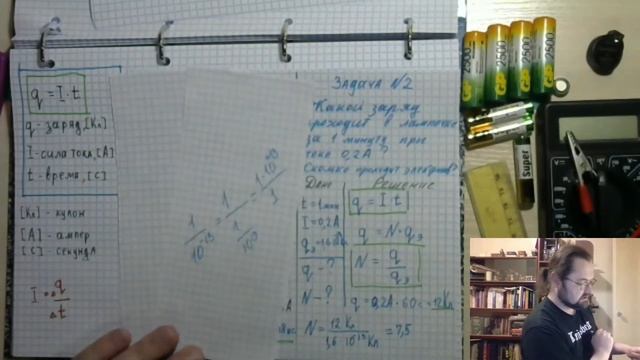 q = I · t
q - заряд, [Кл]
I - сила тока, [А]
t - время, [с]
[Кл] - кулон
[А] - ампер
[с] - секунда
I = Δq / Δt
Задача №2
Какой заряд
проходит в лампочке
за 1 минуту при
токе 0,2А?
Сколько проходит электронов?
Дано
Решение
t = 1 мин
I = 0,2А
q - ?
N - ?
q = I · t
q = N · qэ
N = q / qэ
q = 0,2А · 60с = 12 Кл
N = 12 Кл / 1,6 · 10 Кл = 7,5
GP 2500
GP 2500
GP 2500
GP 2500
Super